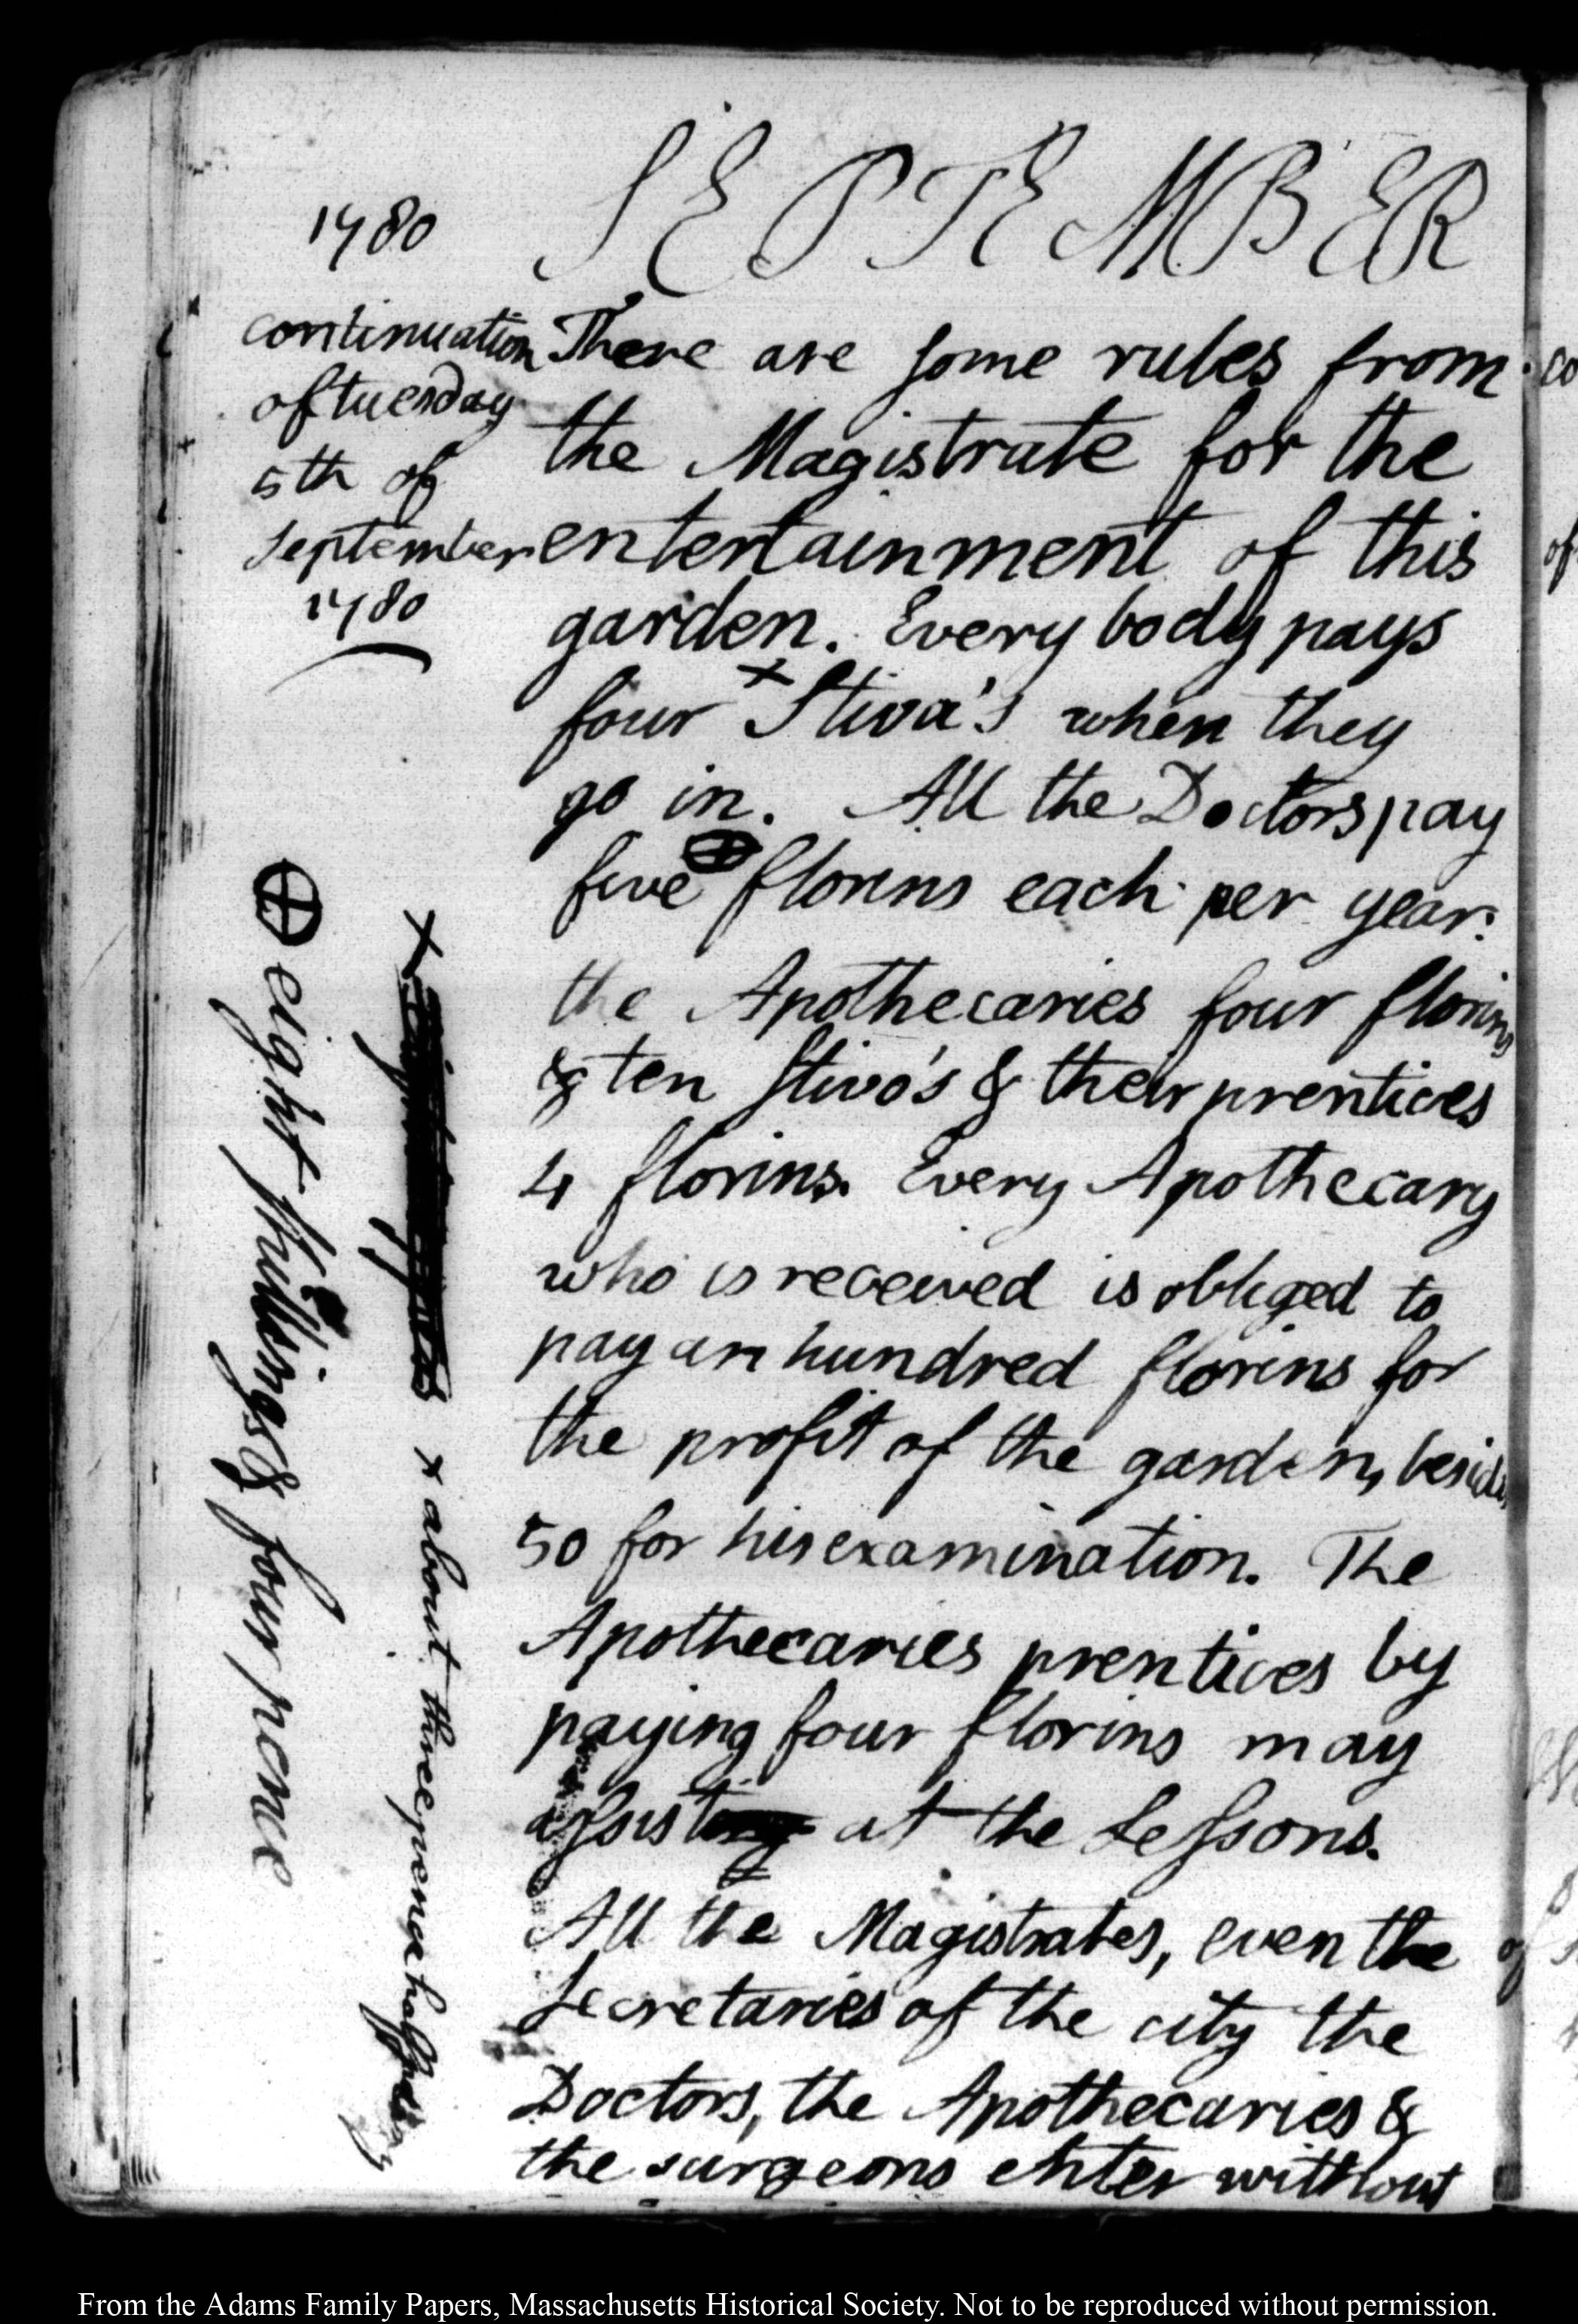 1780
SEPTEMBER
continuation
of tuesday
5th of
September
1780
There are some rules from
the Magistrate for the
entertainment of this
garden. Every body pays
four + Stiva's when they
go in. All the Doctors pay
five ⊕ florins each per year.
the Apothecaries four florins
& ten Stivo's & their prentices
4 florins. Every Apothecary
who is received is obliged to
pay an hundred florins for
the profit of the garden, besides
50 for his examination. The
Apothecaries prentices by
paying four florins may
assist at the Lessons.
All the Magistrates, even the
Secretaries of the city the
Doctors, the Apothecaries &
the surgeons enter without
⊕ eight shillings & four pence
+
+ about three pence half penny
co
of
of
From the Adams Family Papers, Massachusetts Historical Society. Not to be reproduced without permission.